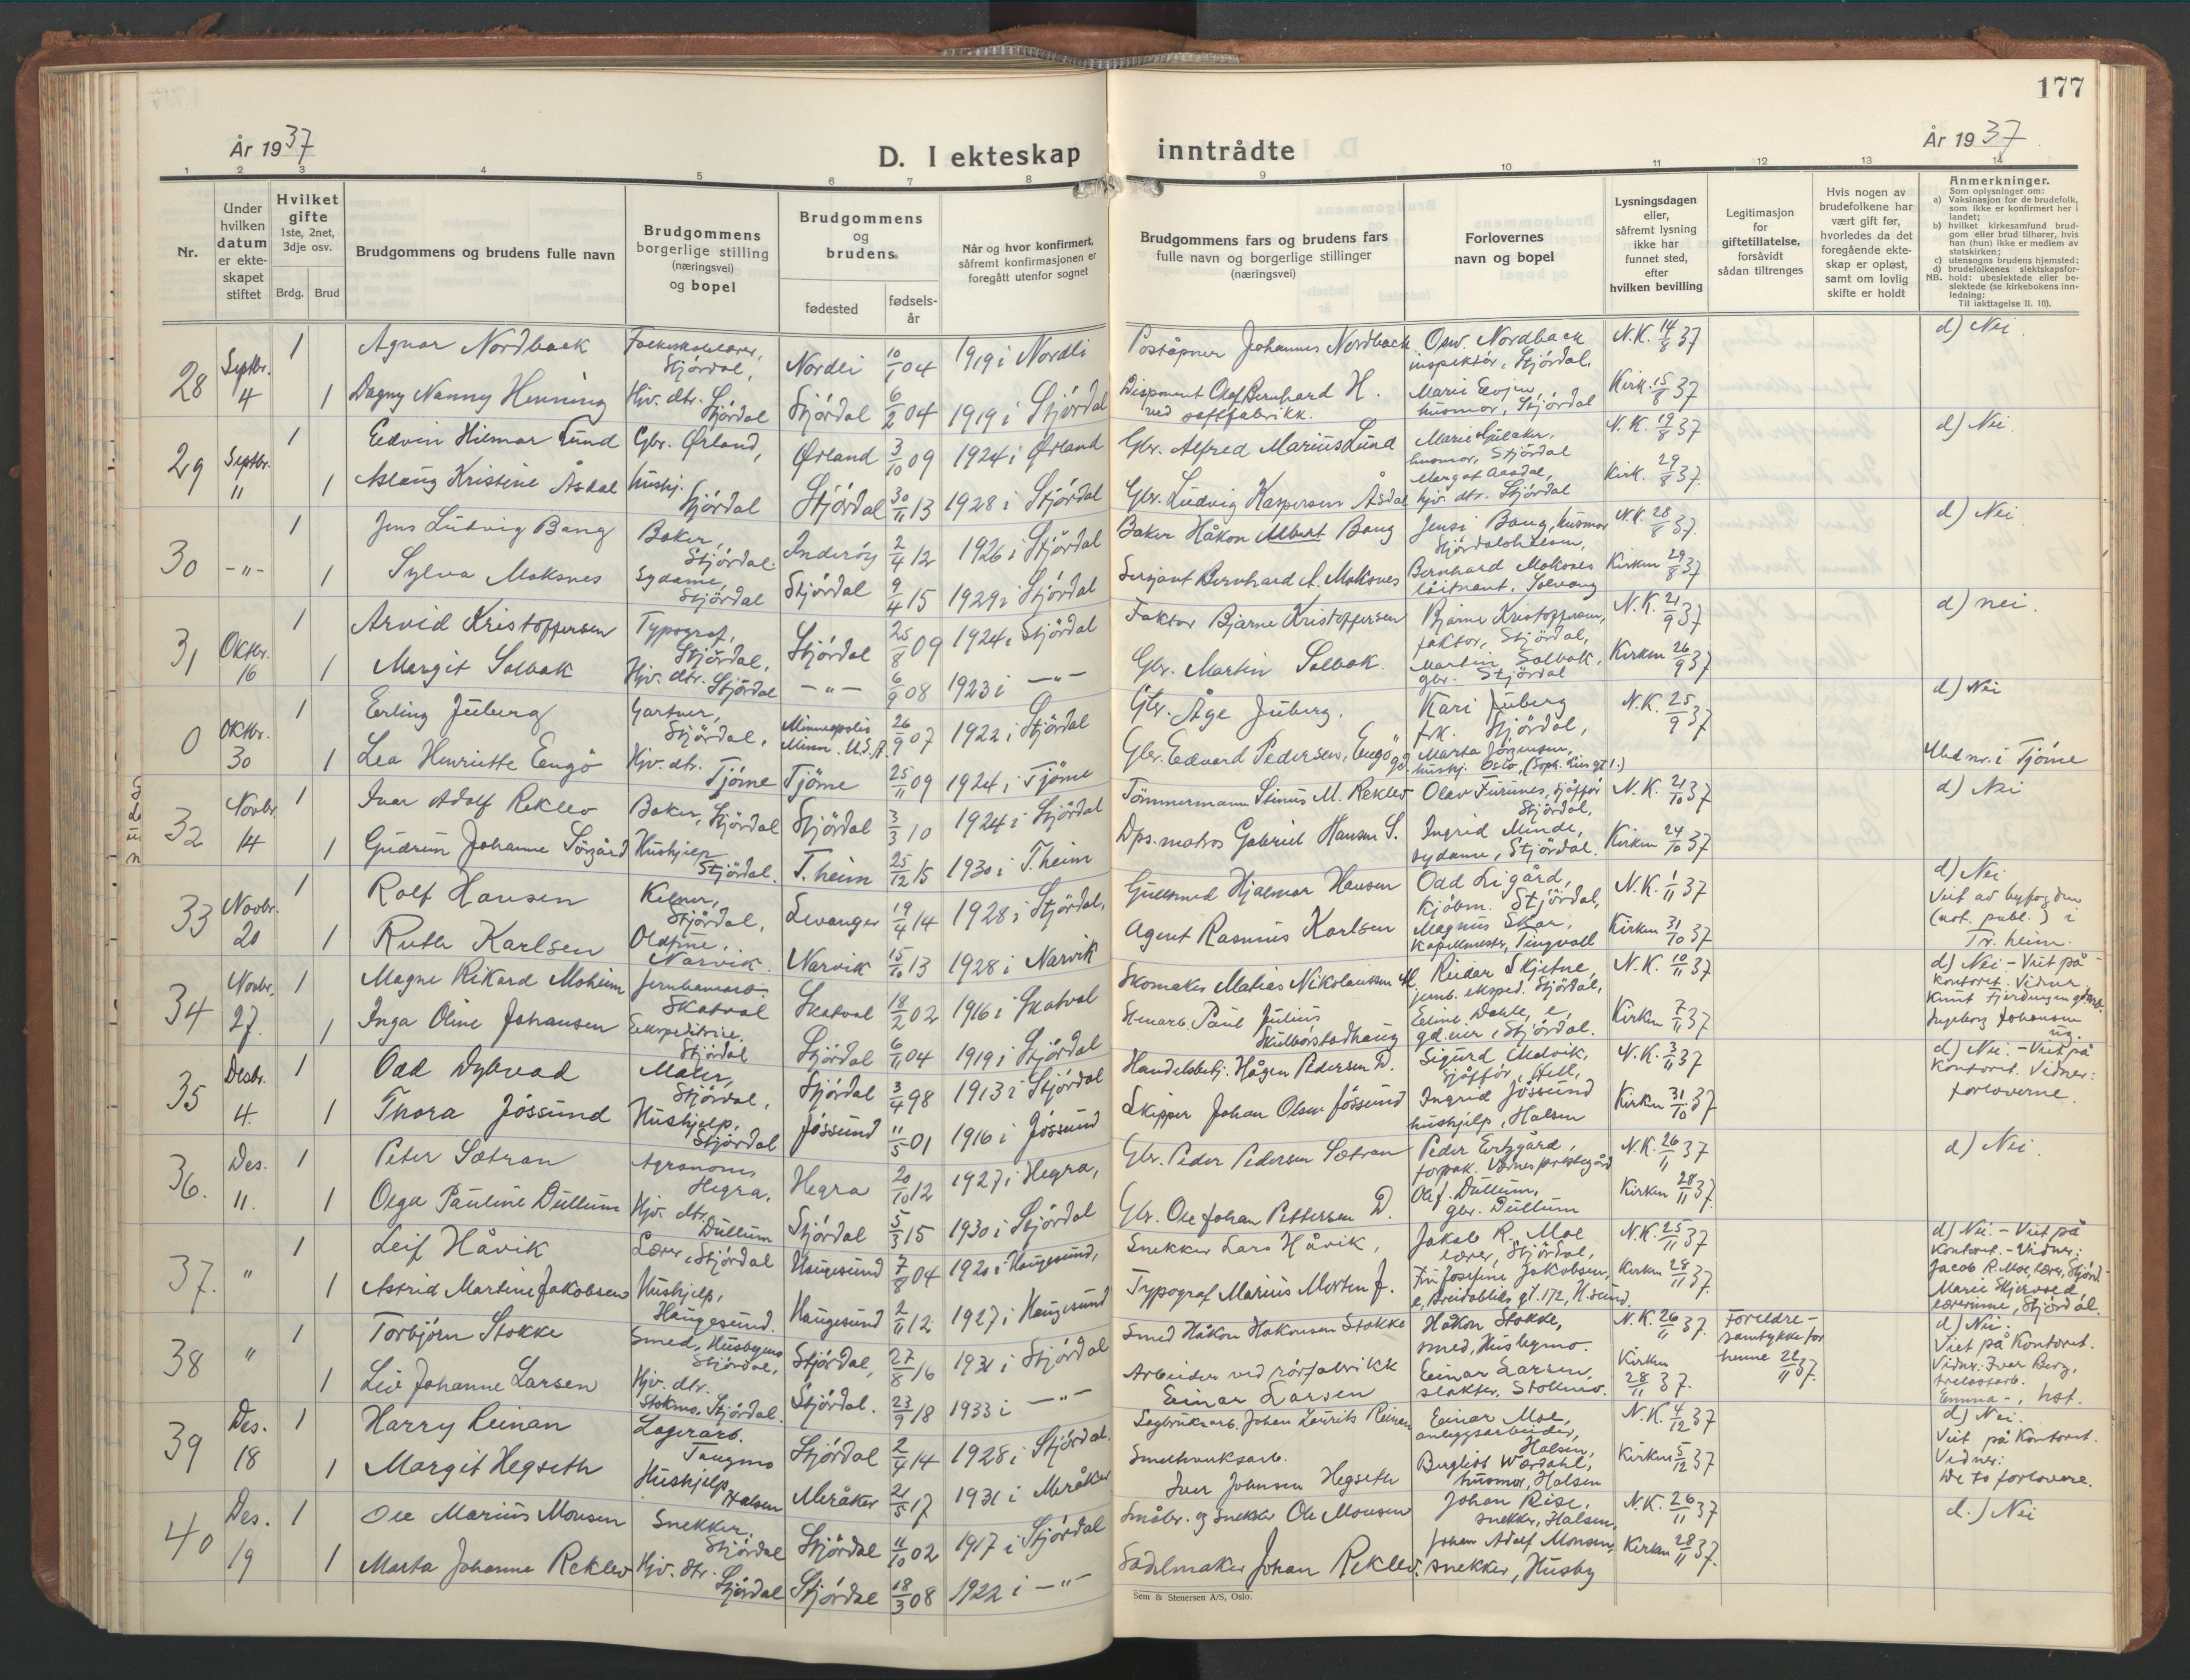 177
År 1937
D. I ekteskap inntrådte
År 1937
1 2 3 4 5 6 7 8 9 10 11 12 13 14
Nr.
Under hvilken datum er ekteskapet stiftet
Hvilket gifte 1ste, 2net, 3dje osv.
Brdg. Brud
Brudgommens og brudens fulle navn
Brudgommens borgerlige stilling (næringsvei) og bopel
Brudgommens og brudens
fødested
fødselsår
Når og hvor konfirmert, såfremt konfirmasjonen er foregått utenfor sognet
Brudgommens fars og brudens fars fulle navn og borgerlige stillinger (næringsvei)
Forlovernes navn og bopel
Lysningsdagen eller, såfremt lysning ikke har funnet sted, efter hvilken bevilling
Legitimasjon for giftetillatelse, forsåvidt sådan tiltrenges
Hvis nogen av brudefolkene har vært gift før, hvorledes da det foregående ekteskap er opløst, samt om lovlig skifte er holdt
Anmerkninger.
Som oplysninger om:
a) Vaksinasjon for de brudefolk, som ikke er konfirmert her i landet;
b) hvilket kirkesamfund brudgom eller brud tilhører, hvis han (hun) ikke er medlem av statskirken;
c) utensogns brudens hjemsted;
d) brudefolkenes slektskapsforhold: ubeslektede eller beslektede (se kirkebokens innledning:
NB. Til iakttagelse II. 10).
28 Septbr. 4 1 Agnar Nordback Folkeskolelærer, Stjördal, Nordli 10/1 04 1919 i Nordli Poståpner Johannes Nordback Osv. Nordback inspektör, Stjördal. N.K. 14/8 37 d) Nei.
1 Dagny Nanny Henning Hjv. dtr. Stjördal Stjördal 6/2 04 1919 i Stjördal Disponent Olaf Bernhard H. ved saftfabrikk. Marie Evjen, husmor, Stjördal Kirk. 15/8 37
29 Septbr. 11 1 Edvin Hilmar Lund Gbr. Ørland, Ørland 3/10 09 1924 i Ørland Gbr. Alfred Marius Lund Marie husmor, Stjördal N.K. 19/8 37 d) Nei
1 Aslaug Kristine Åsdal Hushj. Stjördal Stjördal 30/11 13 1928 i Stjördal Gbr. Ludvig Kaspersen Åsdal Margot Aasdal, hjv. dtr. Stjördal Kirk. 29/8 37.
30 -"- 1 Jens Ludvig Bang Baker, Stjördal. Inderöy 2/4 12 1926 i Stjördal Baker Håkon Albert Bang Jensi Bang, husmor Stjördalshalsen, N.K. 28/8 37. d) Nei
1 Sylva Moksnes Sydame, Stjördal Stjördal 9/4 15 1929 i Stjördal Serjant Bernhard A. Moksnes Bernhard Moksnes löitnant, Solvang Kirken 29/8 37
31 Oktbr. 16 1 Arvid Kristoffersen Typograf, Stjördal, Stjördal 25/8 09 1924 i Stjördal Faktor Bjarne Kristoffersen Bjarne Kristoffersen, faktor, Stjördal, N.K. 21/9 37 d) nei.
1 Margit Solbak Hjv. dtr. Stjördal -"- 6/9 08 1923 i -"- Gbr. Martin Solbak. Martin Solbak, gbr. Stjördal Kirken 26/9 37
0 Oktbr. 30 1 Erling Juberg Gartner, Stjördal, Minneapolis Minn. U.S.A. 26/9 07 1922 i Stjördal Gbr. Åge Juberg. Kari Juberg frk. Stjördal, N.K. 25/9 37 d) Nei
1 Lea Henriette Engö Hjv. dtr. Tjöme Tjöme 25/11 09 1924 i Tjöme Gbr. Edvard Pedersen, Engö gd. Marta Jörgensen, hushj. Oslo, Utd nr. i Tjöme
32 Novbr. 14 1 Ivar Adolf Reklev Baker, Stjördal Stjördal 3/3 10 1924 i Stjördal Tömmermann Stinus M. Reklev Olav Furunes, sjåfför Stjördal, N.K. 21/10 37 d) Nei
1 Gudrun Johanne Sörgård Hushjelp Stjördal. T.heim 25/12 15 1930 i T.heim Dps. matros Gabriel Hansen S. Ingrid Minde, sydame, Stjördal. Kirken 24/10 37
33 Novbr. 20 1 Rolf Hansen Kelner, Stjördal, Levanger 19/4 14 1928 i Stjördal, Gullsmed Hjalmar Hansen Odd Ligård, Kjöbm. Stjördal, N.K. 1/11 37 d) Nei Viet av byfogden (not. publ.) i Tr.heim.
1 Ruth Karlsen Oldfrue, Narvik. Narvik 15/10 13 1928 i Narvik Agent Rasmus Karlsen Magnus Skar, Kapellmester, Tingvoll Kirken 31/10 37
34 Novbr. 27. 1 Magne Rikard Moheim Jernbanearb. Skatval Skatval 18/2 02 1916 i Skatval Skomaker Matias Nikolaisen M. Reidar Skjetne, jernb. eksped. Stjördal, N.K. 10/11 37 d) Nei - Viet på kontoret. Vidner: Knut Fjerdingen
1 Inga Oline Johansen Ekspeditrise, Stjördal Stjördal 6/11 04 1919 i Stjördal Stenarb. Paul Julius Skulbörstadhaug Eline Dahl, gd.eier, Stjördal. Kirken 7/11 37 Ingeborg Johansen
35 Desbr. 4. 1 Odd Dybvad Maler, Stjördal, Stjördal 3/4 98 1913 i Stjördal Handelsbetj. Hågen Pedersen D. Sigurd Melvik, Sjåfför, Hell, N.K. 3/11 37 d) Nei. - Viet på kontoret. Vidner: forloverne.
1 Thora Jössund Hushjelp, Stjördal Jössund 11/5 01 1916 i Jössund Skipper Johan Olsen Jössund Ingrid Jössund hushjelp, Halsen Kirken 31/10 37
36. Des. 11. 1 Peter Sætran Agronom, Hegra, Hegra 20/10 12 1927 i Hegra, Gbr. Peder Pedersen Sætran Peder Ertzgård, forpak. Værnes prestegård N.K. 26/11 37 d) Nei.
1 Olga Pauline Dullum Hjv. dtr. Dullum Stjördal 5/3 15 1930 i Stjördal Gbr. Ole Johan Pettersen D. Olaf Dullum, gbr. Dullum Kirken 28/11 37.
37. " 1 Leif Håvik Lærer, Stjördal Haugesund 7/8 04 1920 i Haugesund, Snekker Lars Håvik, Jakob R. Moe lærer, Stjördal, N.K. 25/11 37 d) Nei. - Viet på kontoret. - Vidner: Jacob R. Moe, lærer, Stjörd.
1 Astrid Martine Jakobsen Hushjelp, Haugesund. Haugesund 2/11 12 1927 i Haugesund Typograf Marius Morten J. Fru Josefine Jakobsen, Breidabliks gt. 172, H.sund. Kirken 28/11 37. Marie Skjervold, lærerinne, Stjördal.
38 " 1 Torbjörn Stokke Smed, Husbymo Stjördal, Stjördal, 27/8 16 1931 i Stjördal Smed Håkon Hakonsen Stokke Håkon Stokke, smed, Husbymo. N.K. 26/11 37. Foreldresamtykke for henne 22/11 37. d) Nei. Viet på kontoret. Vidner: Ivar Berg, trelastarb.
1 Liv Johanne Larsen Hjv. dtr. Stokmo, Stjördal. Stjördal. 23/9 18 1933 i -"- Arbeider ved rörfabrikk Einar Larsen Einar Larsen, slakter, Stokmo. Kirken 28/11 37. Emma -"-, hst.
39 Des. 18 1 Harry Reinan Lagerarb. Tangmo Stjördal 2/4 14 1928 i Stjördal. Sagbruksarb. Johan Laurits Reinan Einar Moe, anleggsarbeider, Halsen, N.K. 4/12 37 d) Nei. Viet på kontoret. Vidner: De to forlovere.
1 Margit Hegseth Hushjelp Halsen Meråker 21/5 17 1931 i Meråker Smelteverksarb. Iver Johnsen Hegseth Bergljot Værdahl, husmor, Halsen Kirken 5/12 37
40 Des. 19 1 Ole Marius Monsen Snekker, Stjördal Stjördal 11/10 02 1917 i Stjördal Småbr. og snekker Ole Monsen Johan Rise, snekker, Halsen, N.K. 26/11 37 d.) Nei
1 Marta Johanne Reklev Hjv. dtr. Stjördal Stjördal 18/3 08 1922 i -"- Sadelmaker Johan Reklev. Johan Adolf Monsen, snekker, Husby Kirken 28/11 37.
Sem & Stenersen A/S, Oslo.